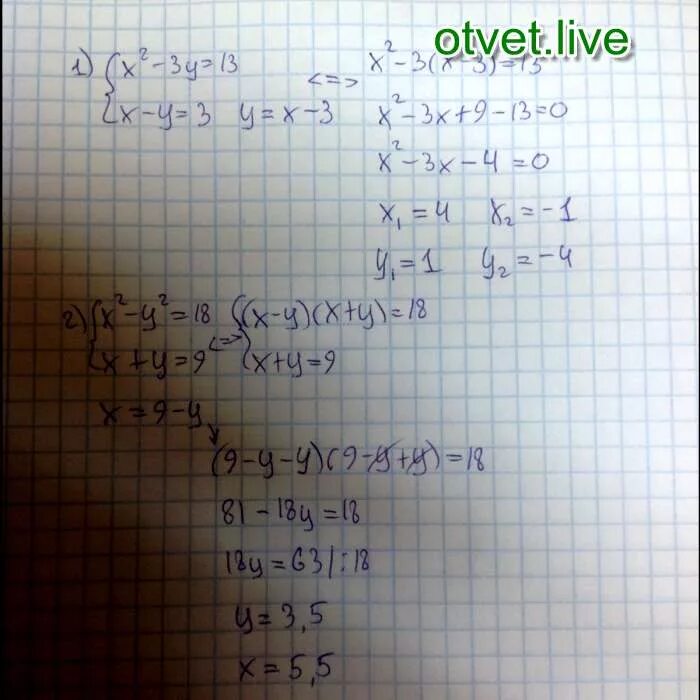 otvet.live
1) { x² - 3y = 13
{ x - y = 3 y = x - 3
<=> x² - 3(x - 3) = 13
x² - 3x + 9 - 13 = 0
x² - 3x - 4 = 0
x₁ = 4 x₂ = -1
y₁ = 1 y₂ = -4
2) { x² - y² = 18 <=> { (x - y)(x + y) = 18
{ x + y = 9 { x + y = 9
x = 9 - y
(9 - y - y)(9 - y + y) = 18
81 - 18y = 18
18y = 63 | : 18
y = 3,5
x = 5,5